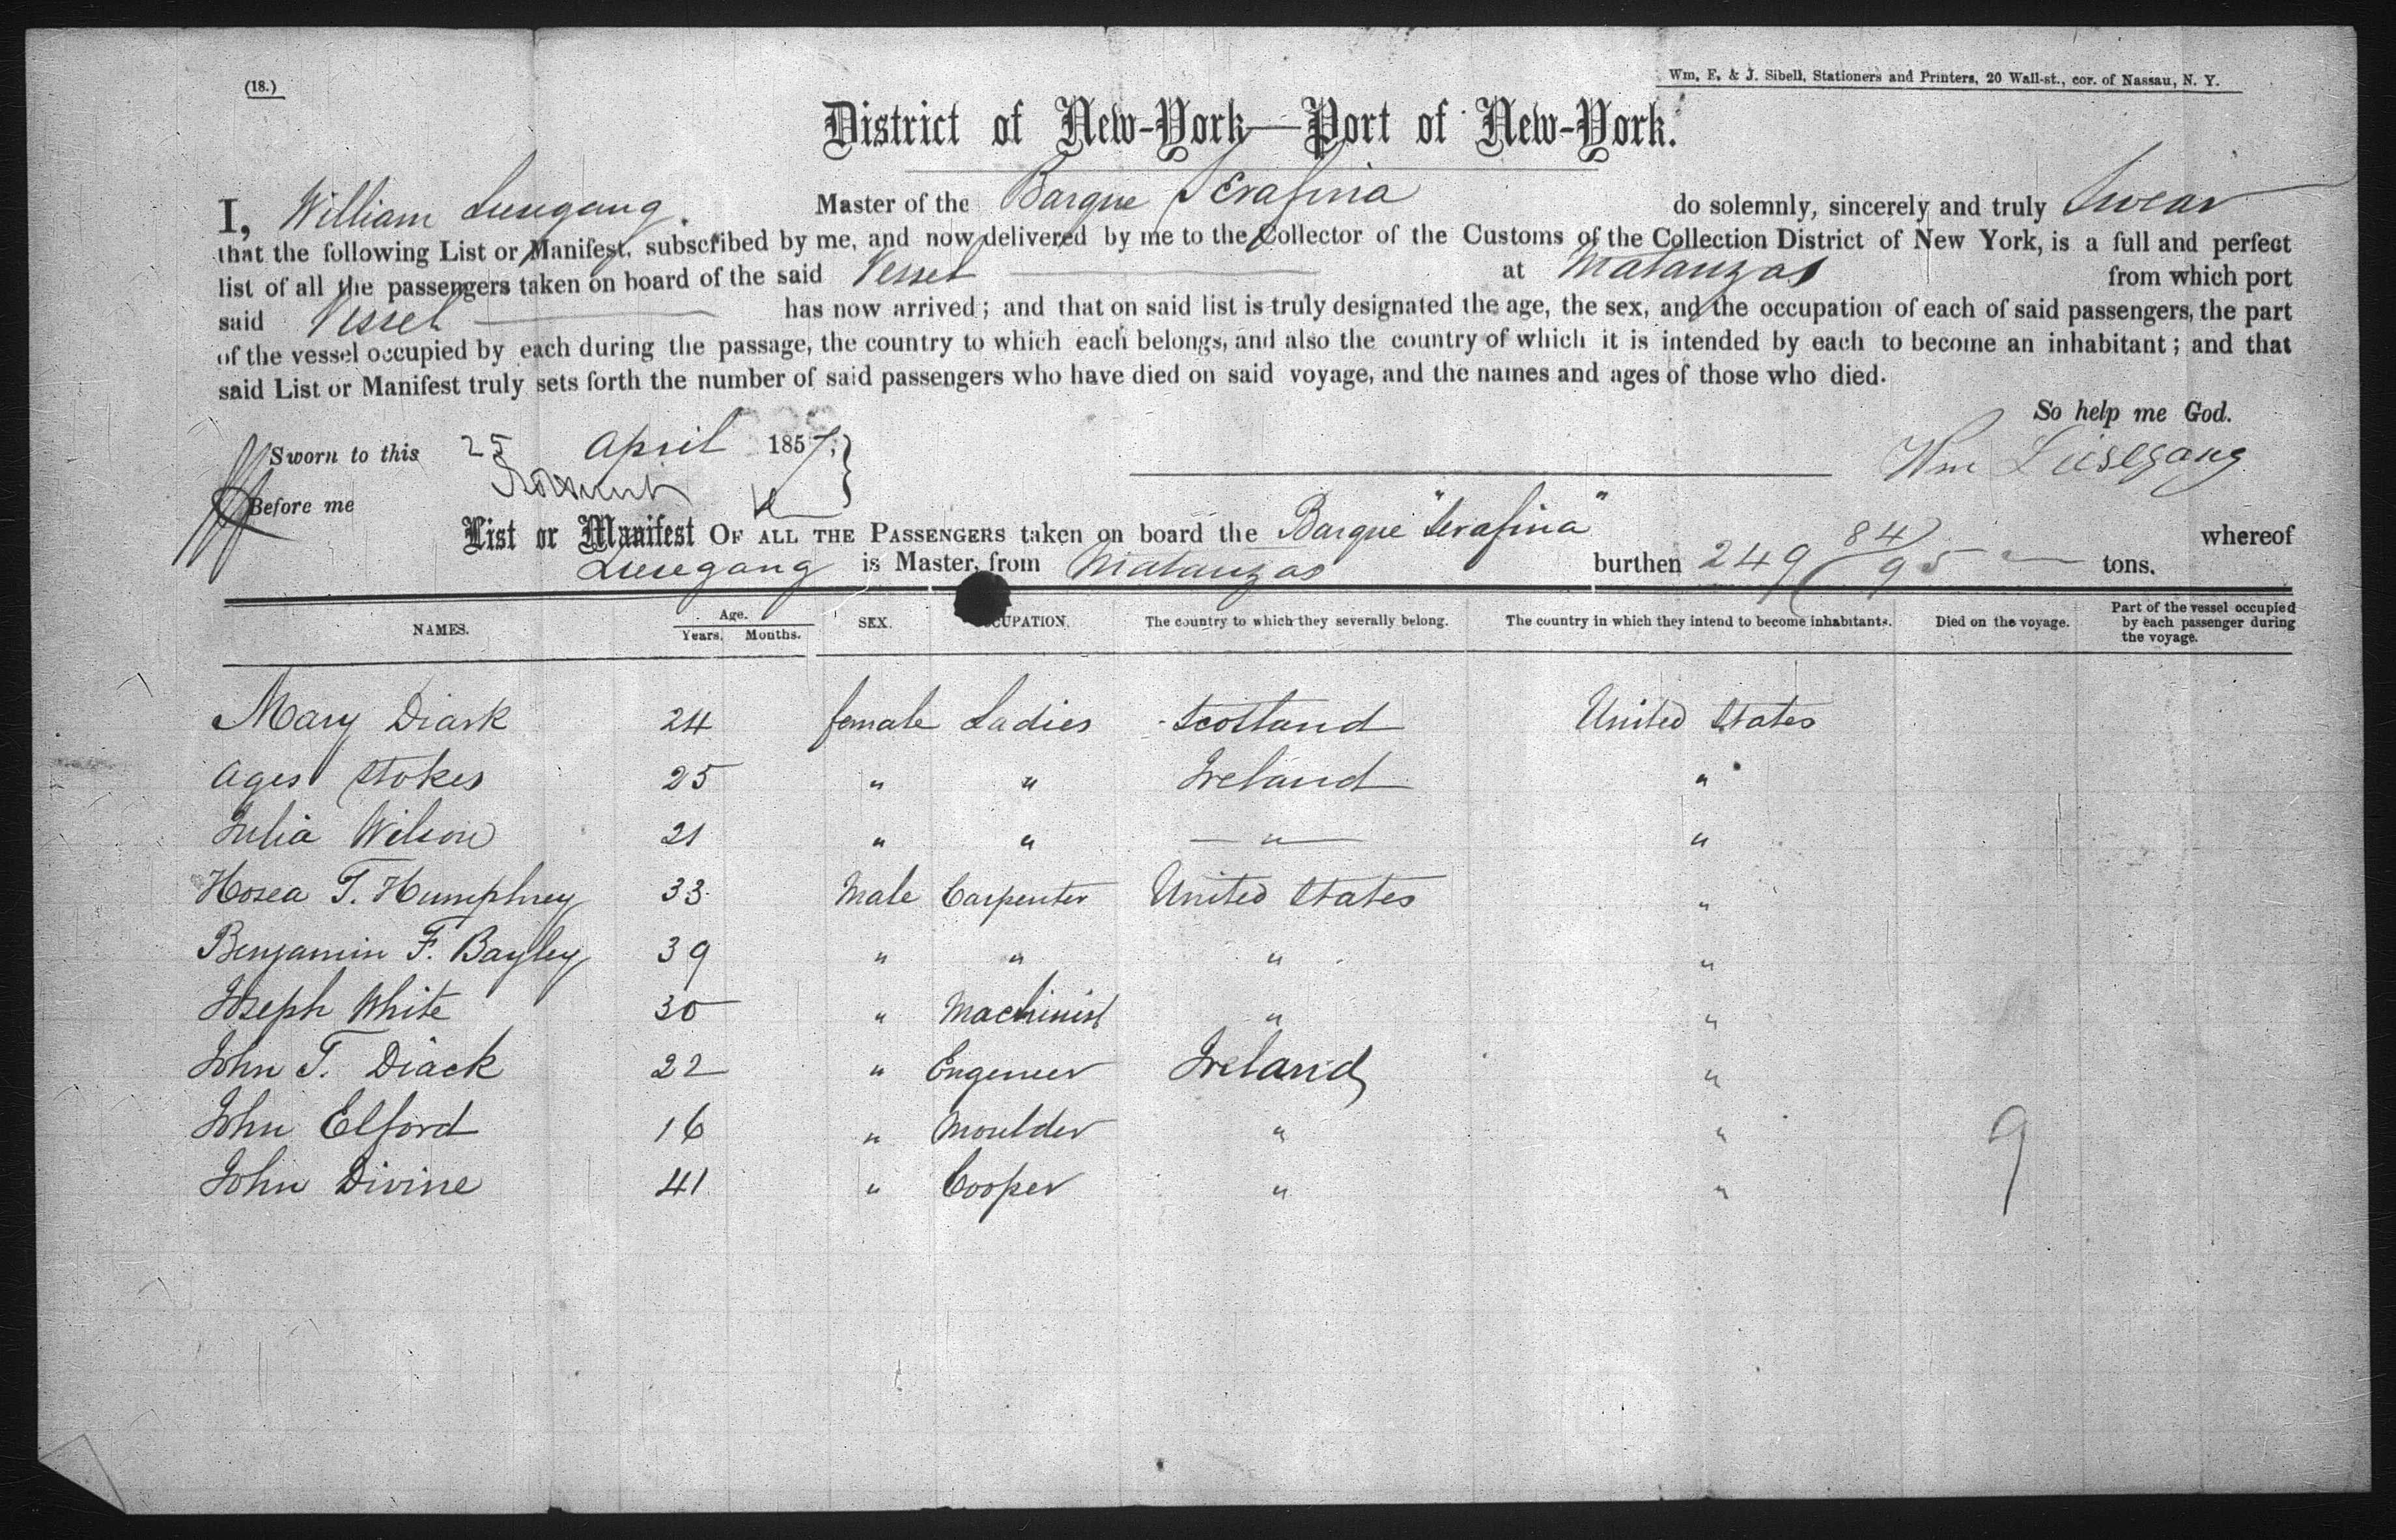 (18.)
Wm. E. & J. Sibell, Stationers and Printers, 20 Wall-st., cor. of Nassau, N. Y.
District of New-York—Port of New-York.
I, William Liesegang. Master of the Barque Serafina do solemnly, sincerely and truly Swear
that the following List or Manifest, subscribed by me, and now delivered by me to the Collector of the Customs of the Collection District of New York, is a full and perfect
list of all the passengers taken on board of the said Vessel at Matanzas from which port
said Vessel has now arrived; and that on said list is truly designated the age, the sex, and the occupation of each of said passengers, the part
of the vessel occupied by each during the passage, the country to which each belongs, and also the country of which it is intended by each to become an inhabitant; and that
said List or Manifest truly sets forth the number of said passengers who have died on said voyage, and the names and ages of those who died.
So help me God.
Sworn to this 25 April 1857. Wm Liesegang
Before me
List or Manifest OF ALL THE PASSENGERS taken on board the Barque "Serafina" whereof
Liesegang is Master, from Matanzas burthen 249 84/95 tons.
NAMES. Age. Years. Months. SEX. CUPATION. The country to which they severally belong. The country in which they intend to become inhabitants. Died on the voyage. Part of the vessel occupied by each passenger during the voyage.
Mary Diack 24 female Ladies Scotland United States
Ages Stokes 25 " " Ireland "
Julia Wilson 21 " " — " — "
Hosea T. Humphrey 33 Male Carpenter United States "
Benjamin F. Bayley 39 " " " "
Joseph White 30 " Machinist " "
John T. Diack 22 " Engeneer Ireland "
John Elford 16 " Moulder " "
John Divine 41 " Cooper " "
9